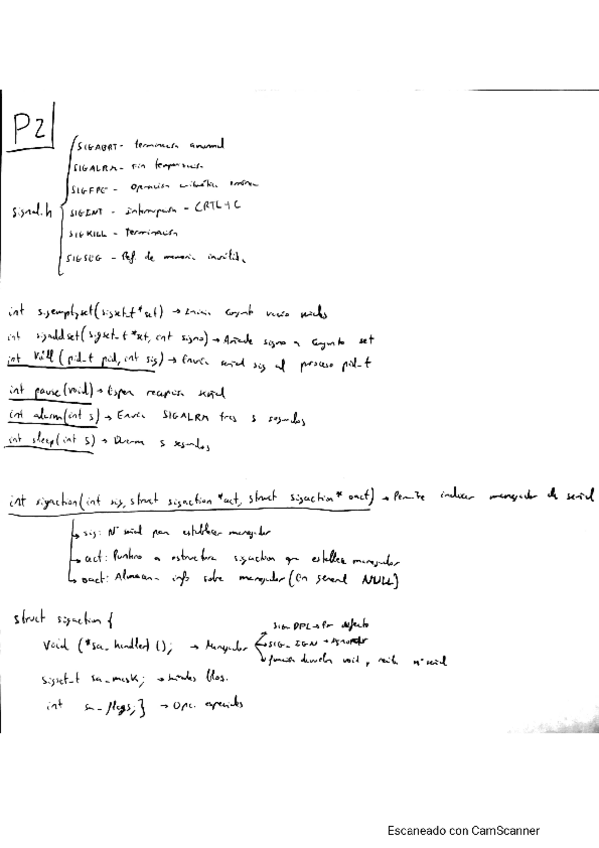 P2
signal.h
SIGABRT - terminación anormal
SIGALRM - Fin temporizador
SIGFPE - Operación aritmética errónea
SIGINT - interrupción - CRTL+C
SIGKILL - Terminación
SIGSEG - Ref. de memoria inválida
int sigemptyset(sigset_t *set) → conjunto vacío señales
int sigaddset(sigset_t *set, int signo) → Añade signo a conjunto set
int kill (pid_t pid, int sig) → Envía señal sig al proceso pid_t
int pause(void) → Espera recepción señal
int alarm(int s) → Envía SIGALRM tras s segundos
int sleep(int s) → Duerme s segundos
int sigaction(int sig, struct sigaction *act, struct sigaction* oact) → Permite indicar manejador de señal
sig: Nº señal para establecer manejador
act: Puntero a estructura sigaction que establece manejador
oact: Almacena info sobre manejador (En general NULL)
struct sigaction {
void (*sa_handler) (); → Manejador
SIG_DFL → Por defecto
SIG_IGN → Ignorar
función devuelve void y recibe nº señal
sigset_t sa_mask; → señales bloq.
int sa_flags;} → Opc. especiales
Escaneado con CamScanner